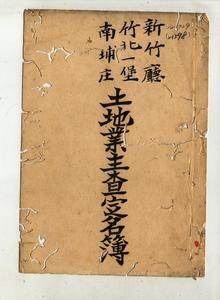 新竹廳
竹北一堡
南埔庄
土地業主查定名簿